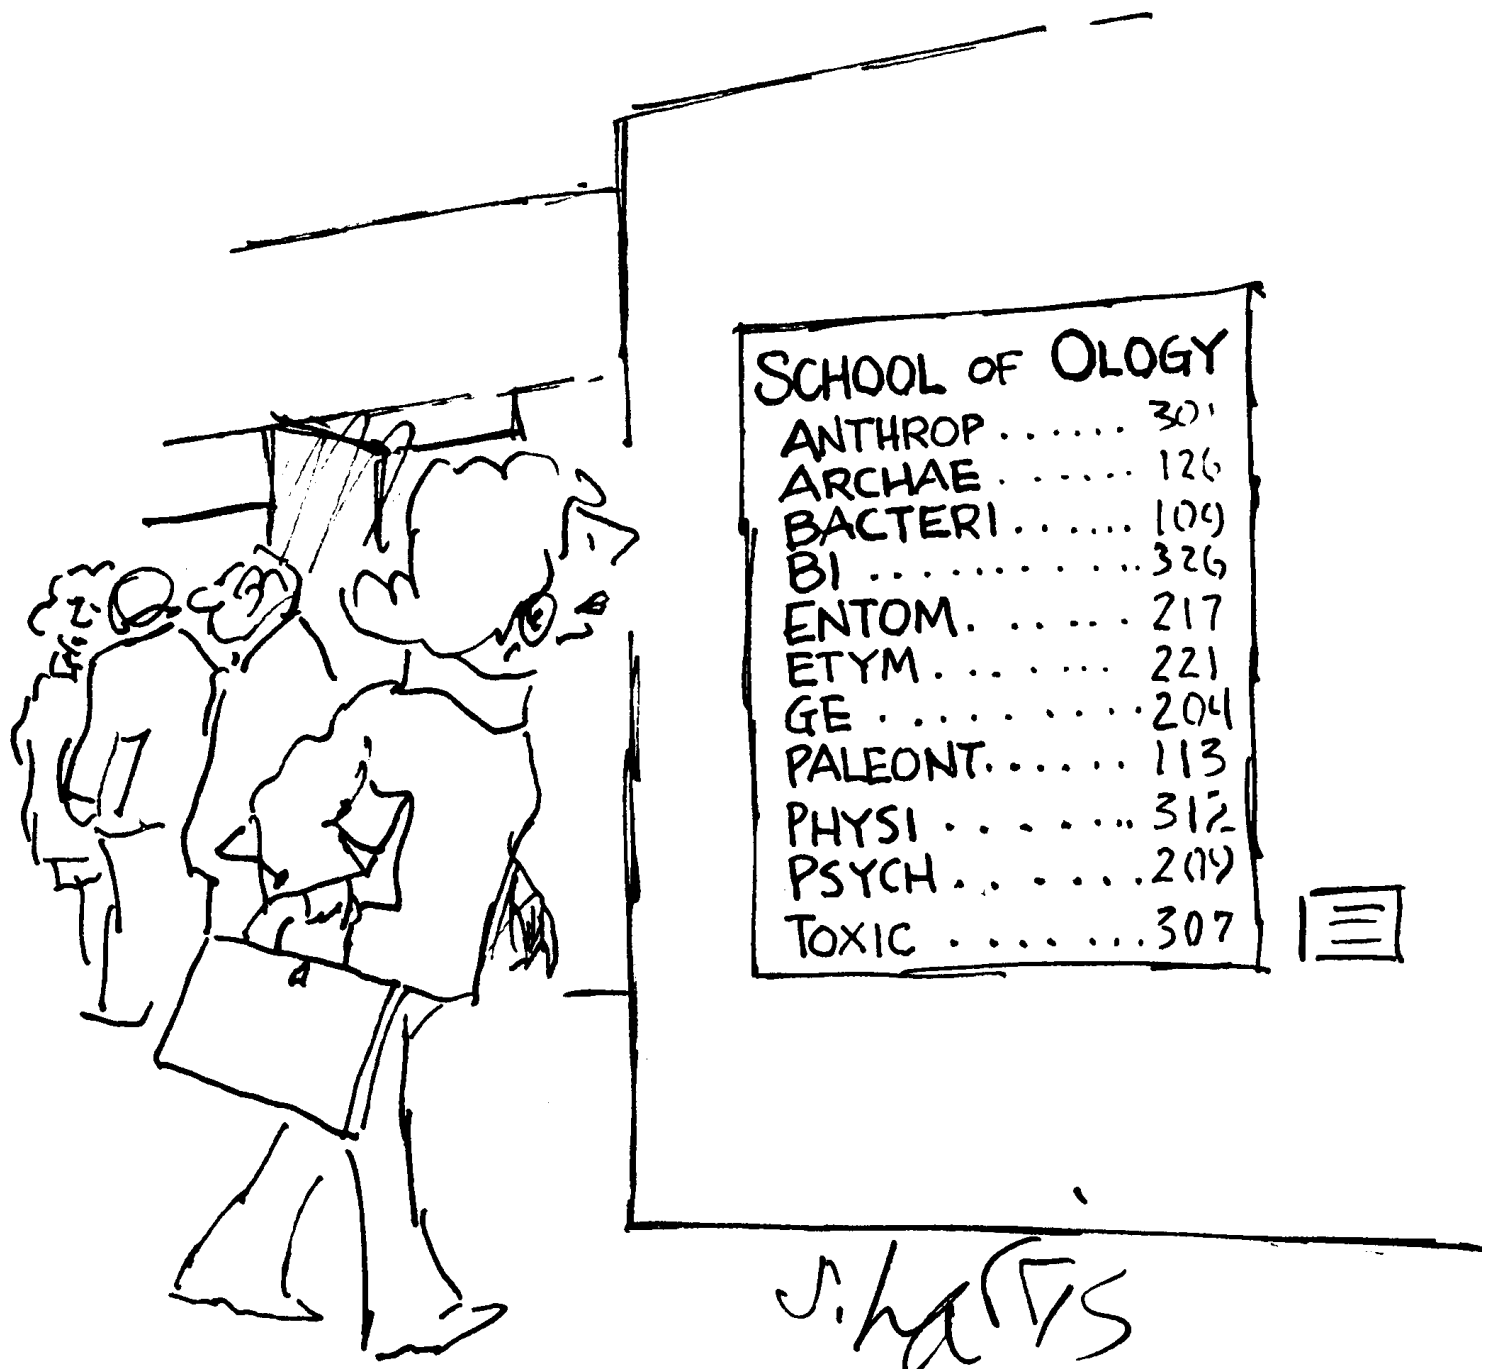 SCHOOL OF OLOGY
ANTHROP...... 301
ARCHAE...... 126
BACTERI...... 109
BI........... 326
ENTOM...... 217
ETYM...... 221
GE......... 204
PALEONT...... 113
PHYSI....... 312
PSYCH...... 209
TOXIC....... 307
S. harris